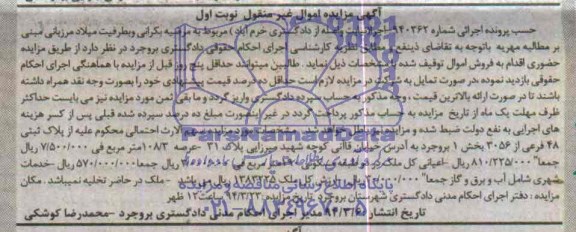 آگهی مزایده اموال غیر منقول نوبت اول
حسب پرونده اجرائی شماره ۹۴۰۲۶۲ اجرا از دادگستری خرم آباد ) مربوط به مرضیه بکرانی وبطرفیت میلاد مرزبانی مبنی
بر مطالبه مهریه باتوجه به تقاضای ذینفع و کارشناسی اجرای احکام حقوقی دادگستری بروجرد در نظر دارد از طریق مزایده
حضوری اقدام به فروش اموال توقیف شده مشخصات ذیل نماید. طالبین میتوانند حداقل پنج روز قبل از مزایده با هماهنگی اجرای احکام
حقوقی بازدید نموده ،در صورت تمایل به شرکت در مزایده لازم است حداقل ده درصد قیمت پیشنهادی خود را بصورت وجه نقد همراه داشته
باشند تا در صورت ارائه بالاترین قیمت ،وجه مذکور به حساب سپرده دادگستری واریز گردد و ما بقی ثمن مورد مزایده نیز می بایست حداکثر
ظرف مهلت یک ماه از تاریخ مزایده به حساب مذکور پرداخت گردد در غیر اینصورت مبلغ ده درصد سپرده شده قبلی پس از کسر هزینه
های اجرایی به نفع دولت ضبط شده و مزایده محکوم علیه از پلاک ثبتی
۴۸ فرعی از ۳۰۵۶ بخش ۱ بروجرد به آدرس قائی کوچه شهید میرزایی پلاک ۳۱ -عرصه ۱۰۸/۳ متر مربع فی ۷/۵۰۰/۰۰۰ ریال
جمعا" ۸۱۰/۲۲۵/۰۰۰ ریال -اعیانی کل ملک مربع ریال جمعا ۵۷۰/۰۰۰/۰۰۰ ریال -خدمات
شهری شامل آب و برق و گاز جمعا" ریال کل ملک ریال میباشد - ملک در حاضر تخلیه نمیباشد. مکان
مزایده : دفتر اجرای احکام مدنی دادگستری شهرستان بروجرد تاریخ مزایده:۹۴/۳/۲۳ ساعت ۱۲ ظهر
تاریخ انتشار ۹۴/۳/۶ مدیر اجرای احکام مدنی دادگستری بروجرد -محمدرضا کوشکی
ParsNamadData
پایگاه اطلاع رسانی مناقصه و مزایده
۰۲۱-۸۸۳۴۹۶۷۰-۵